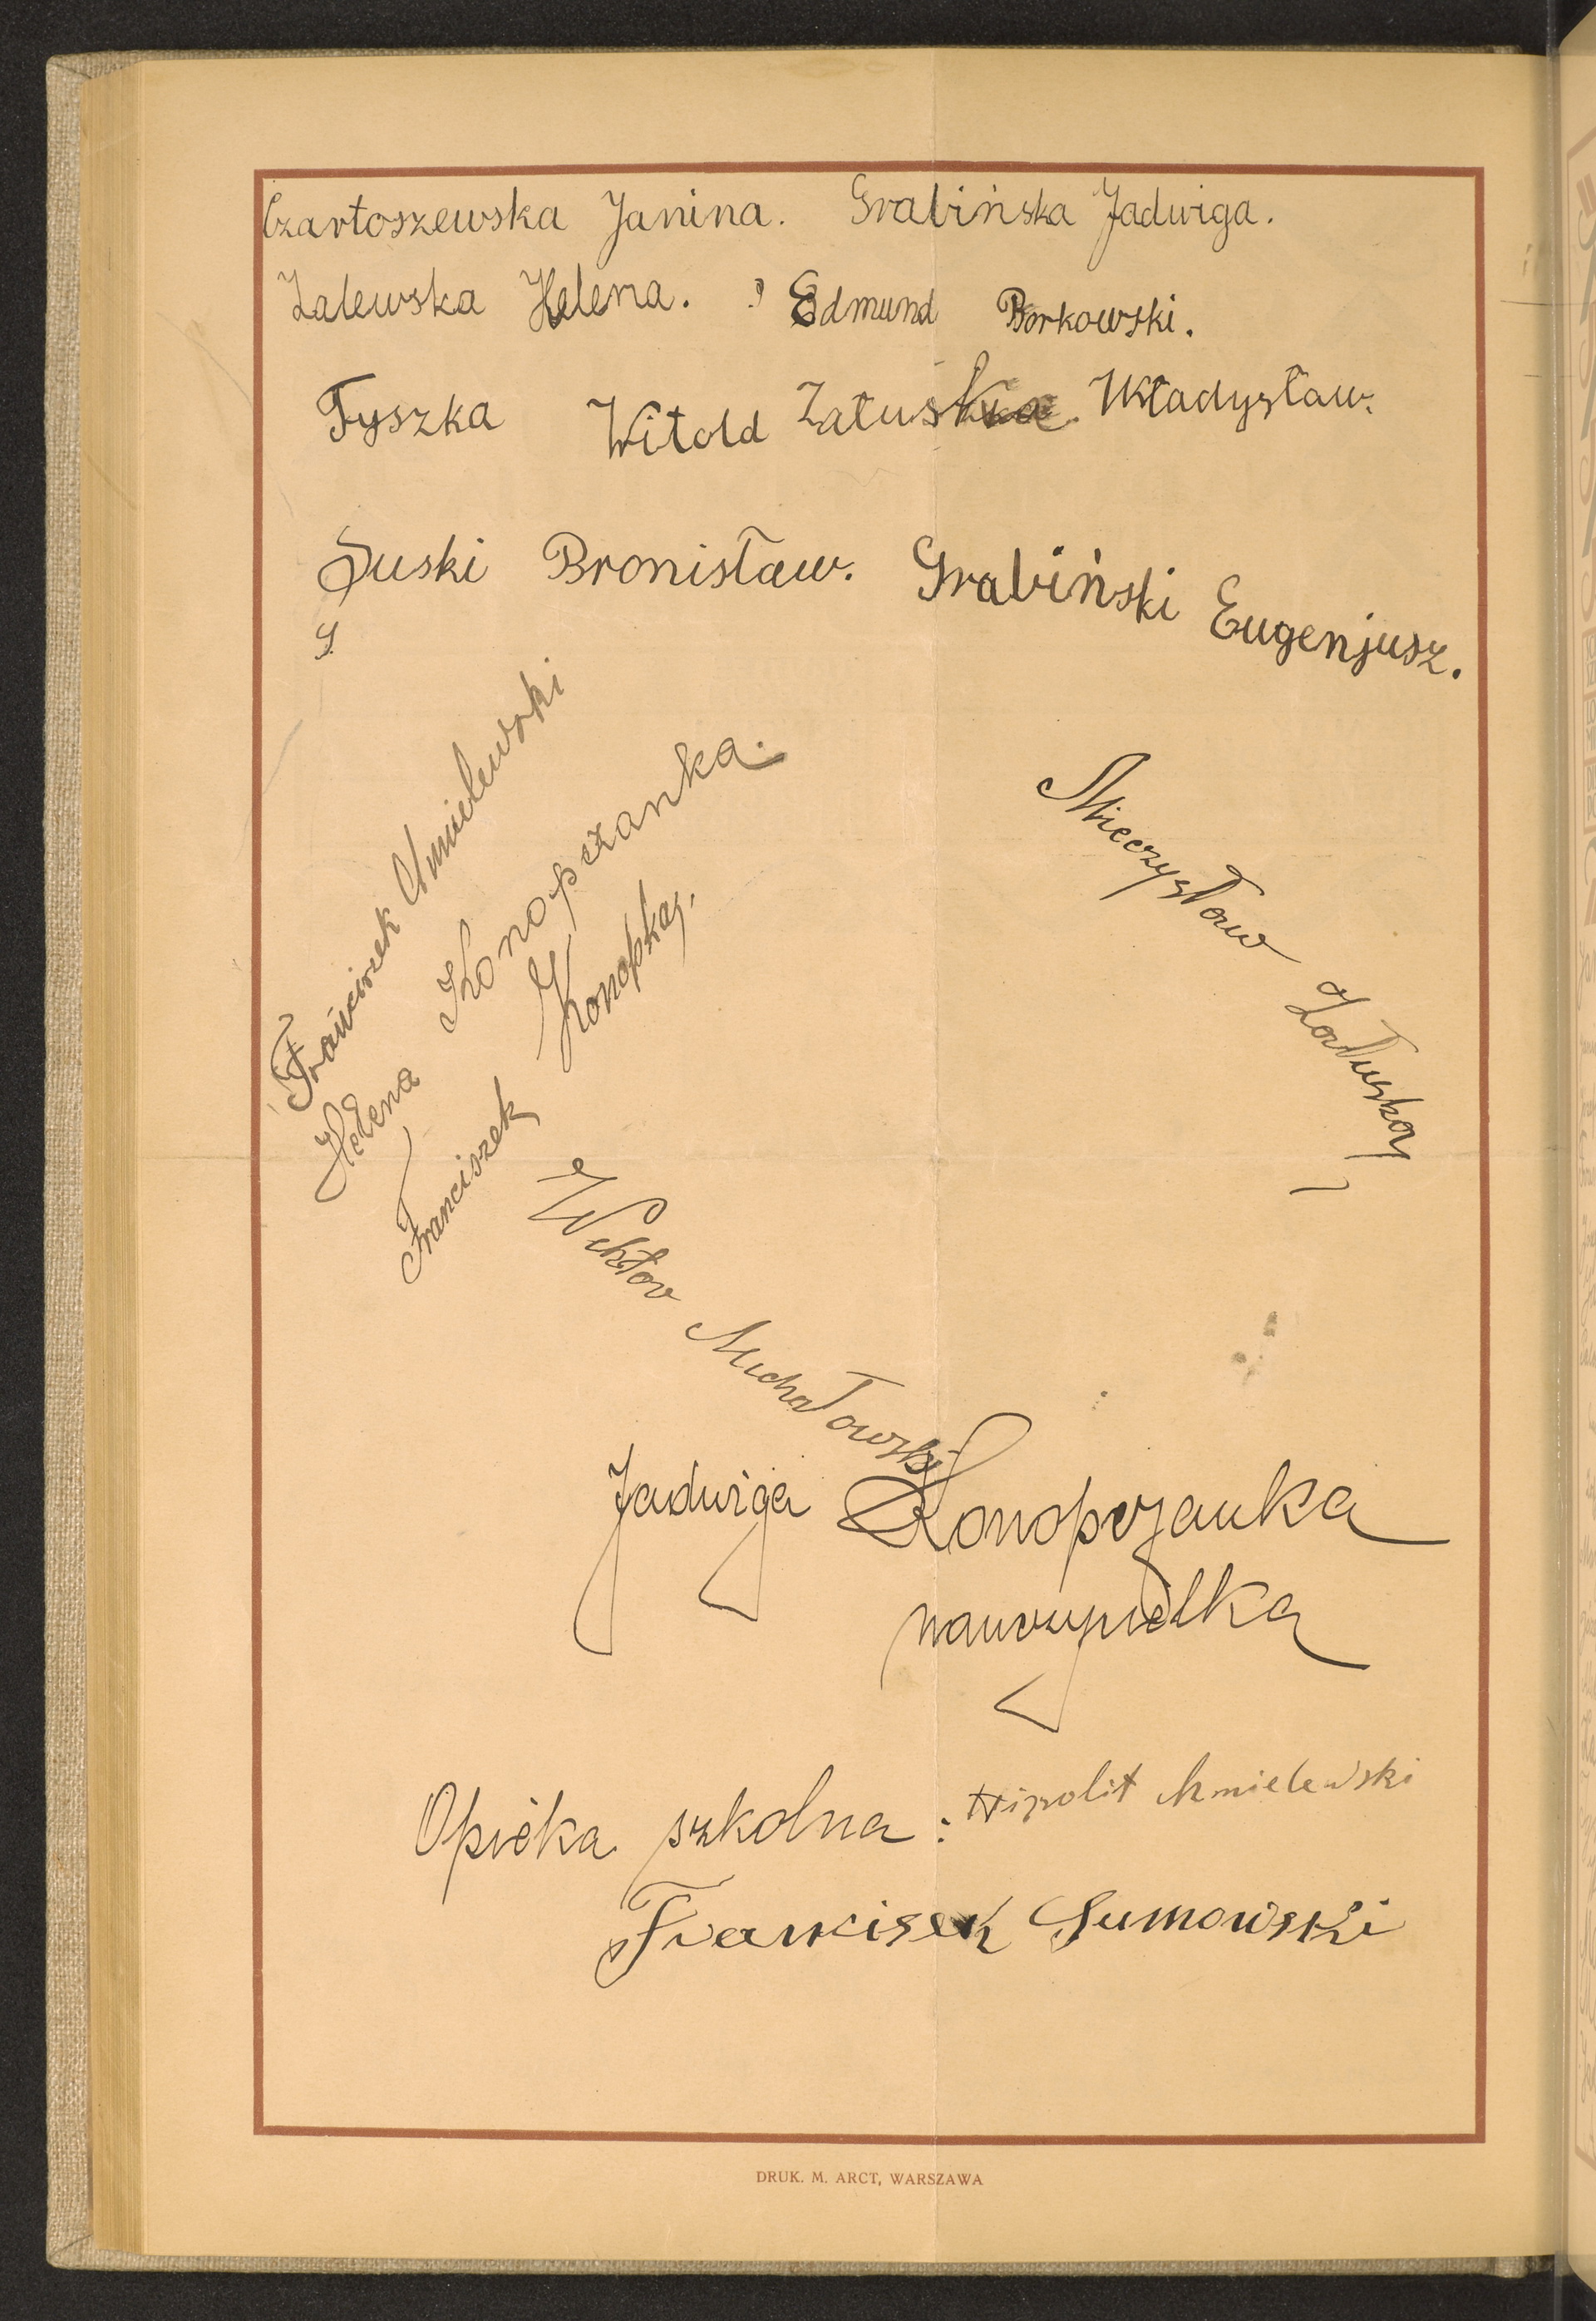 Czartoszewska Janina. Grabińska Jadwiga.
Zalewska Helena. Edmund Borkowski.
Tyszka Witold Załuska Władysław.
Suski Bronisław. Grabiński Eugenjusz.
Franciszek Chmielewski
Helena Konopczanka.
Franciszek Konopka.
Mieczysław Załuska
Wiktor Michałowski
Jadwiga Konopczanka
nauczycielka
Opieka szkolna: Hipolit Chmielewski
Franciszek Sumowski
DRUK. M. ARCT, WARSZAWA